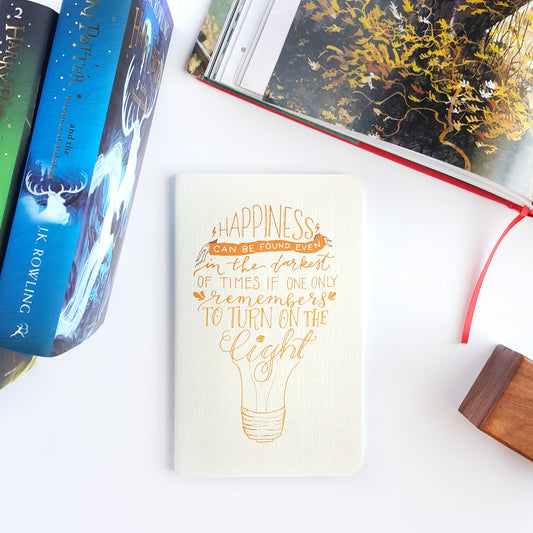 2
HARRY POTTER
and the
Prisoner of Azkaban
J.K. ROWLING
HAPPINESS
CAN BE FOUND EVEN
in the darkest
OF TIMES IF ONE ONLY
remembers
TO TURN ON THE
light